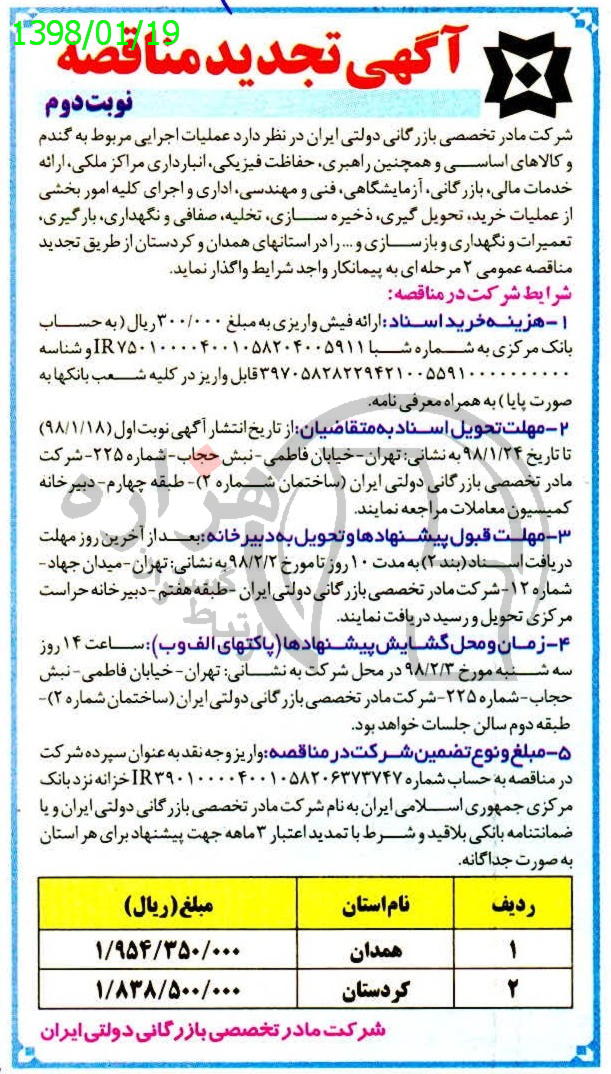 1398/01/19
آگهی تجدید مناقصه
نوبت دوم
شرکت مادر تخصصی بازرگانی دولتی ایران در نظر دارد عملیات اجرایی مربوط به گندم
و کالاهای اساسی و همچنین راهبری، حفاظت فیزیکی، انبارداری مراکز ملکی، ارائه
خدمات مالی، بازرگانی، آزمایشگاهی، فنی و مهندسی، اداری و اجرای کلیه امور بخشی
از عملیات خرید، تحویل گیری، ذخیره سازی، تخلیه، صفافی و نگهداری، بارگیری،
تعمیرات و نگهداری و بازسازی و... را در استانهای همدان و کردستان از طریق تجدید
مناقصه عمومی ۲ مرحله ای به پیمانکار واجد شرایط واگذار نماید.
شرایط شرکت در مناقصه:
۱-هزینه خرید اسناد: ارائه فیش واریزی به مبلغ ۳۰۰/۰۰۰ ریال (به حساب
بانک مرکزی به شماره شبا IR۷۵۰۱۰۰۰۰۴۰۰۱۰۵۸۲۰۴۰۰۵۹۱۱ و شناسه
۳۹۷۰۵۸۲۸۲۲۹۴۲۱۰۰۵۵۹۱۰۰۰۰۰۰۰۰۰۰ قابل واریز در کلیه شعب بانکها به
صورت پایا) به همراه معرفی نامه.
۲-مهلت تحویل اسناد به متقاضیان: از تاریخ انتشار آگهی نوبت اول (۹۸/۱/۱۸)
تا تاریخ ۹۸/۱/۲۴ به نشانی: تهران-خیابان فاطمی-نبش حجاب-شماره ۲۲۵-شرکت
مادر تخصصی بازرگانی دولتی ایران (ساختمان شماره ۲)-طبقه چهارم-دبیرخانه
کمیسیون معاملات مراجعه نمایند.
۳-مهلت قبول پیشنهادها و تحویل به دبیرخانه: بعد از آخرین روز مهلت
دریافت اسناد (بند ۲) به مدت ۱۰ روز تا مورخ ۹۸/۲/۲ به نشانی: تهران-میدان جهاد-
شماره ۱۲-شرکت مادر تخصصی بازرگانی دولتی ایران-طبقه هفتم-دبیرخانه حراست
مرکزی تحویل و رسید دریافت نمایند.
۴-زمان و محل گشایش پیشنهادها (پاکتهای الف و ب): ساعت ۱۴ روز
سه شنبه مورخ ۹۸/۲/۳ در محل شرکت به نشانی: تهران-خیابان فاطمی-نبش
حجاب-شماره ۲۲۵-شرکت مادر تخصصی بازرگانی دولتی ایران (ساختمان شماره ۲)-
طبقه دوم سالن جلسات خواهد بود.
۵-مبلغ و نوع تضمین شرکت در مناقصه: واریز وجه نقد به عنوان سپرده شرکت
در مناقصه به حساب شماره IR۳۹۰۱۰۰۰۰۴۰۰۱۰۵۸۲۰۶۳۷۳۷۴۷ خزانه نزد بانک
مرکزی جمهوری اسلامی ایران به نام شرکت مادر تخصصی بازرگانی دولتی ایران و یا
ضمانتنامه بانکی بلاقید و شرط با تمدید اعتبار ۳ ماهه جهت پیشنهاد برای هر استان
به صورت جداگانه.
ردیف نام استان مبلغ (ریال)
۱ همدان ۱/۹۵۴/۳۵۰/۰۰۰
۲ کردستان ۱/۸۳۸/۵۰۰/۰۰۰
شرکت مادر تخصصی بازرگانی دولتی ایران
هزاره